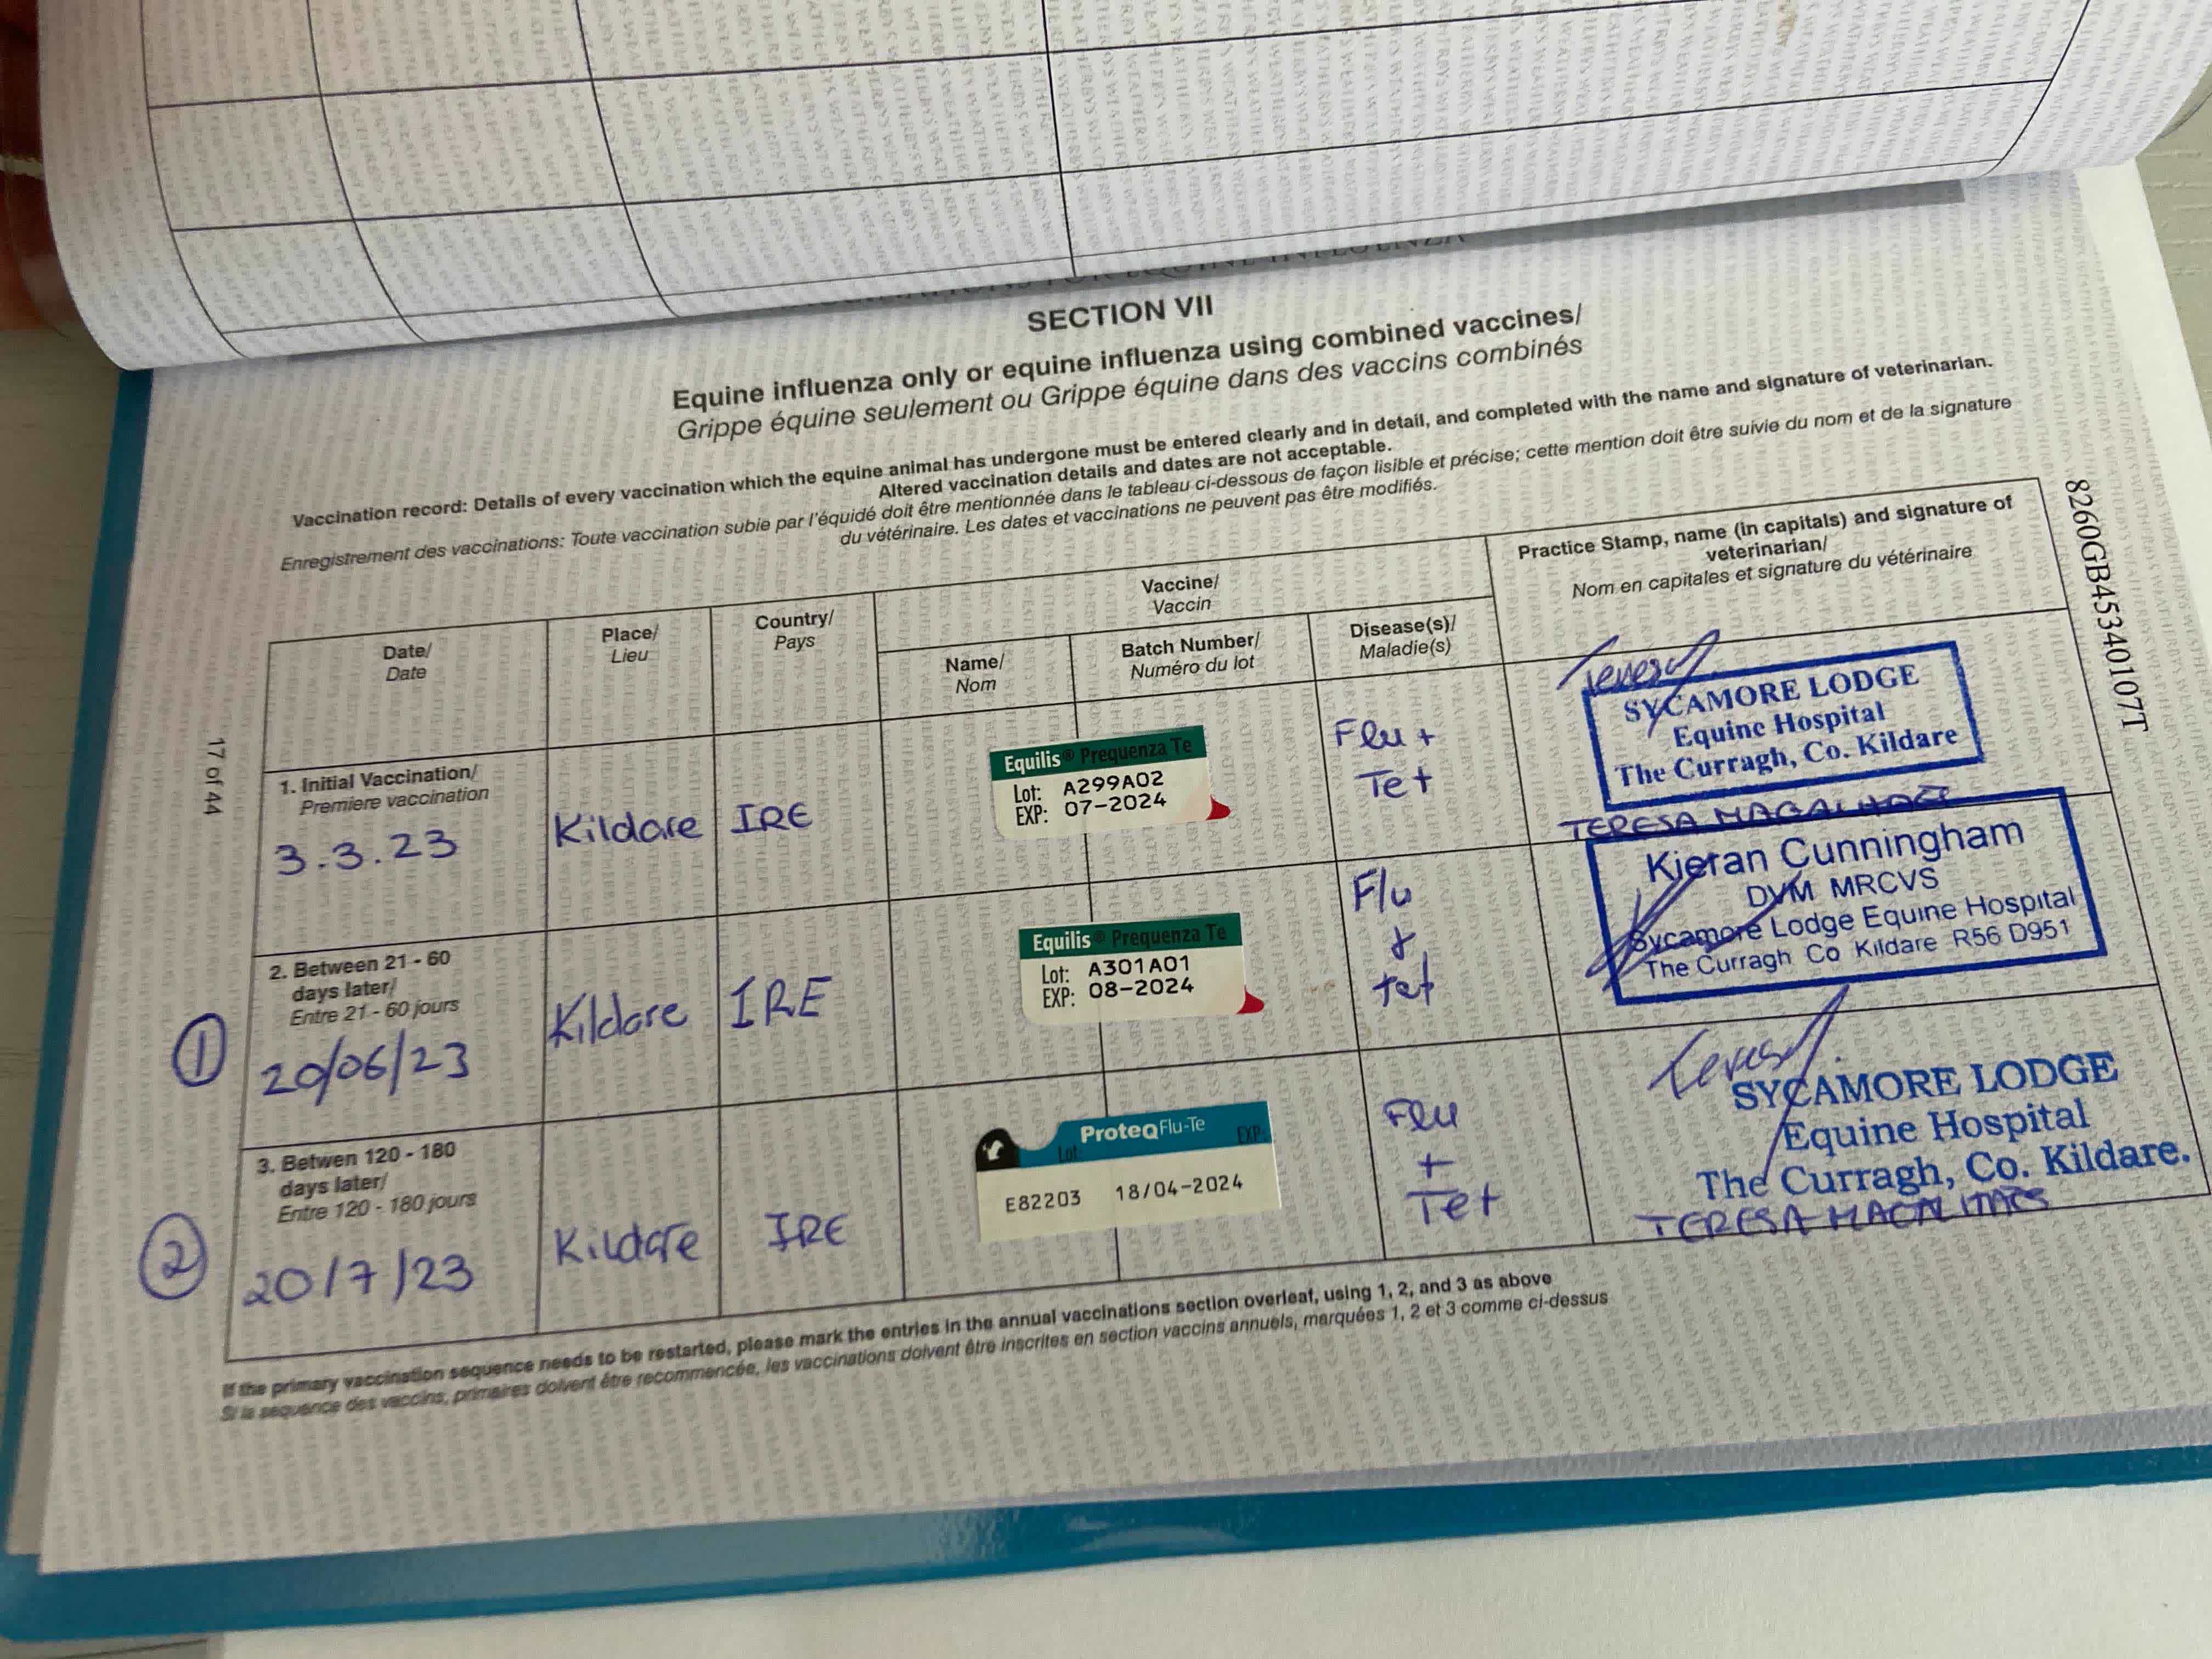 SECTION VII
Equine influenza only or equine influenza using combined vaccines/
Grippe équine seulement ou Grippe équine dans des vaccins combinés
Vaccination record: Details of every vaccination which the equine animal has undergone must be entered clearly and in detail, and completed with the name and signature of veterinarian.
Altered vaccination details and dates are not acceptable.
Enregistrement des vaccinations: Toute vaccination subie par l'équidé doit être mentionnée dans le tableau ci-dessous de façon lisible et précise; cette mention doit être suivie du nom et de la signature
du vétérinaire. Les dates et vaccinations ne peuvent pas être modifiés.
8260GB45340107T
17 of 44
Date/
Date
Place/
Lieu
Country/
Pays
Vaccine/
Vaccin
Name/
Nom
Batch Number/
Numéro du lot
Disease(s)/
Maladie(s)
Practice Stamp, name (in capitals) and signature of
veterinarian/
Nom en capitales et signature du vétérinaire
1. Initial Vaccination/
Premiere vaccination
3.3.23
Kildare
IRE
Equilis® Prequenza Te
Lot: A299A02
EXP: 07-2024
Flu +
Tet
Teresa
SYCAMORE LODGE
Equine Hospital
The Curragh, Co. Kildare
TERESA
2. Between 21 - 60
days later/
Entre 21 - 60 jours
1
20/06/23
Kildare
IRE
Equilis® Prequenza Te
Lot: A301A01
EXP: 08-2024
Flu
&
tet
Kieran Cunningham
DVM MRCVS
Sycamore Lodge Equine Hospital
The Curragh Co Kildare R56 D951
3. Betwen 120 - 180
days later/
Entre 120 - 180 jours
2
20/7/23
Kildare
IRE
ProteqFlu-Te
Lot EXP:
E82203 18/04-2024
Flu
+
Tet
Teresa
SYCAMORE LODGE
Equine Hospital
The Curragh, Co. Kildare.
TERESA
If the primary vaccination sequence needs to be restarted, please mark the entries in the annual vaccinations section overleaf, using 1, 2, and 3 as above
Si la sequence des vaccins, primaires doivent être recommencée, les vaccinations doivent être inscrites en section vaccins annuels, marquées 1, 2 et 3 comme ci-dessus